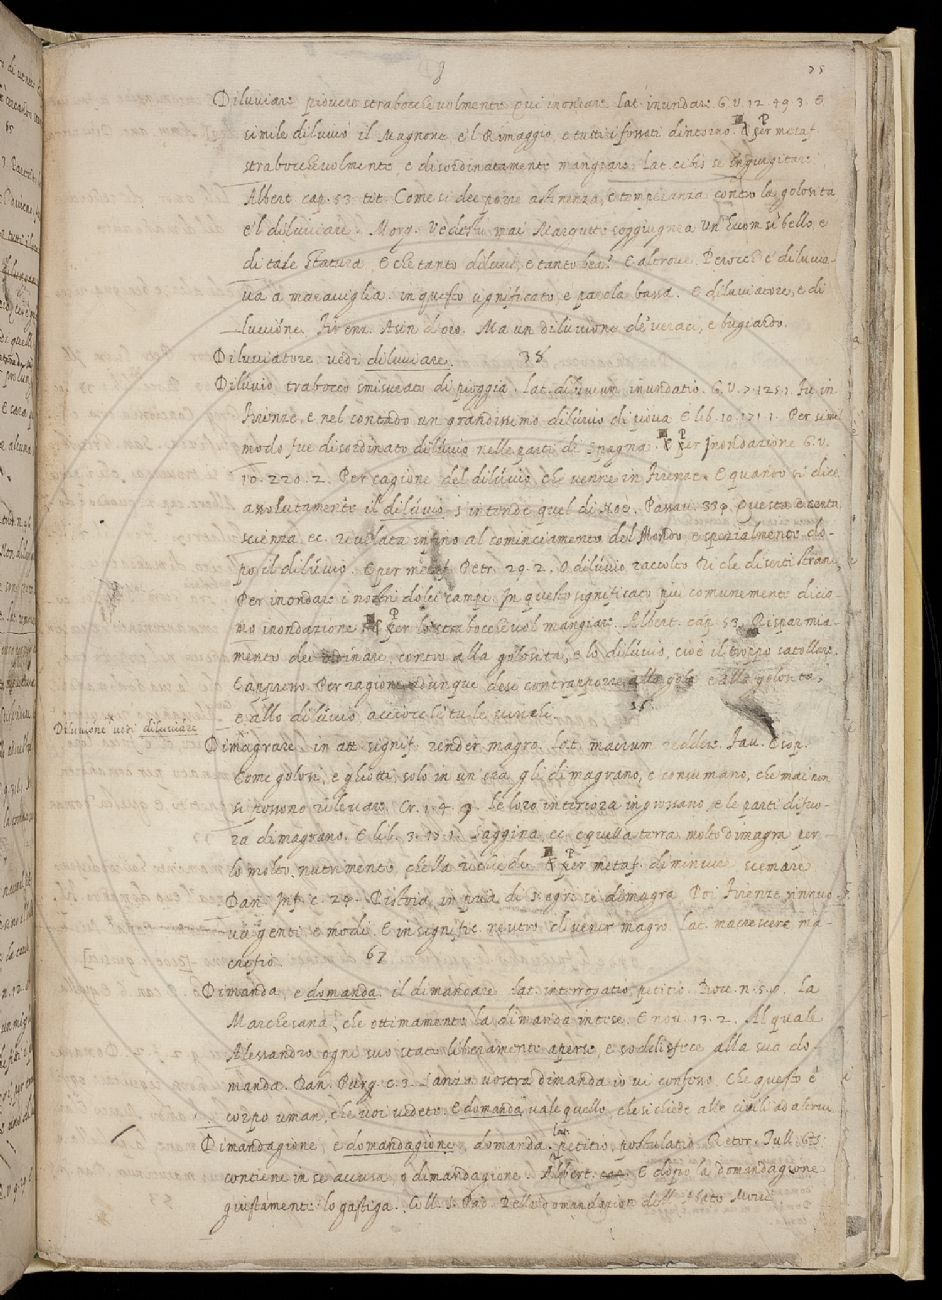 75
Diluviare piovere strabocchevolmente qui inondare lat. inundare. G. V. 12. 49. 3. E
simile diluviò il Mugnone e 'l Rimaggio e tutti i fossati dintorno. ¶ Per metaf.
strabocchevolmente, e disordinatamente mangiare. Lat. cibis se ingurgitare
Albert. cap. 53. tit. Come si dee porre astinenza, e temperanza contro la golosità
e 'l diluviare. Morg. Vedestu mai Margutte soggiugnea un huom sì bello, e
di tale statura, E che tanto diluvi, e tanto bea? E altrove. Perocch' e' diluvia-
va a maraviglia. in questo significato è parola bassa. E diluviatore, e di
luvióne. Firenz. Asin d'oro. Ma un diluvione de' veraci, e bugiardo.
Diluviatore vedi diluviare. 38
Dilúvio trabocco smisurato di pioggia. lat. diluvium inundatio. G. V. 7. 125. 1. Fu in
Firenze, e nel contado un grandissimo diluvio di piova E lib. 10. 171. 1. Per simil
modo fue disordinato dilúvio nelle parti di Spagna. ¶ Per Inondazione G. V.
10. 220. 2. Per cagione del dilúvio che venne in Firenze. E quando si dice
assolutamente il dilúvio s'intende quel di Noè. Passav. 339. Questa è senta
scienza, ec. rivelata infino al cominciamento del Mondo, e spezialmente do-
po il dilúvio. E per metaf. Petr. 29. 2. O diluvio raccolto Di che diserti strani,
Per inondare i nostri dolci campi. In questo significato più comunemente dicia-
mo inondazione ¶ Per lo strabocchevol mangiare. Albert. cap. 53. Risparmia-
mento dei ordinare, contro alla golosità, e lo dilúvio, cioè il troppo satollare.
E appresso. Per ragione adunque dèsi contrapporre alla gola e alla golosità,
e allo dilúvio, acciocchè tu le 36
Diluvione vedi diluviare
Dimagrare. in att. signif. render magro. Lat. macrum reddere. Fav. Esop.
Come golosi, e ghiotti, solo in un'ora gli dimagrano, e consumano, che mai non
si possono rilevare. Cr. 1. 4. 9. Le loro interiora ingrossano, e le parti difuo-
ra dimagrano. E lib. 3. 17. 1. Saggina ec. e quella terra molto dimagra per
lo molto nutrimento, che la richiede ¶ Per metaf. diminuir scemare
Dan. Inf. c. 24. Pistoia in pria di negri si dimagra Poi Firenze rinnuo
va genti e modi. E in signific. neutro divenir magro. Lat. macrescere ma-
crefio. 67
Dimanda, e domanda. il dimandare Lat. interrogatio, petitio. Bocc. n. 5. 6. La
Marchesana, che ottimamente la dimanda intese. E nov. 13. 2. Al quale
Alessandro ogni suo stato liberamente aperse, e soddisfece alla sua do-
manda. Dan. Purg. c. 3. Sanza vostra dimanda io vi confesso, Che questo è
corpo uman, che voi vedete. E domanda vale quello, che si chiede alle civili ad altrui
Dimandagione, e domandagione, domanda. Lat. petitio, postulatio. Retor. Tull. 63.
contiene in se accusa, o dimandagione. Albert. cap. E dopo la domandagione
giustamente lo gastiga. Coll. S. Pad. Della domandagion dell' Abate Moisè